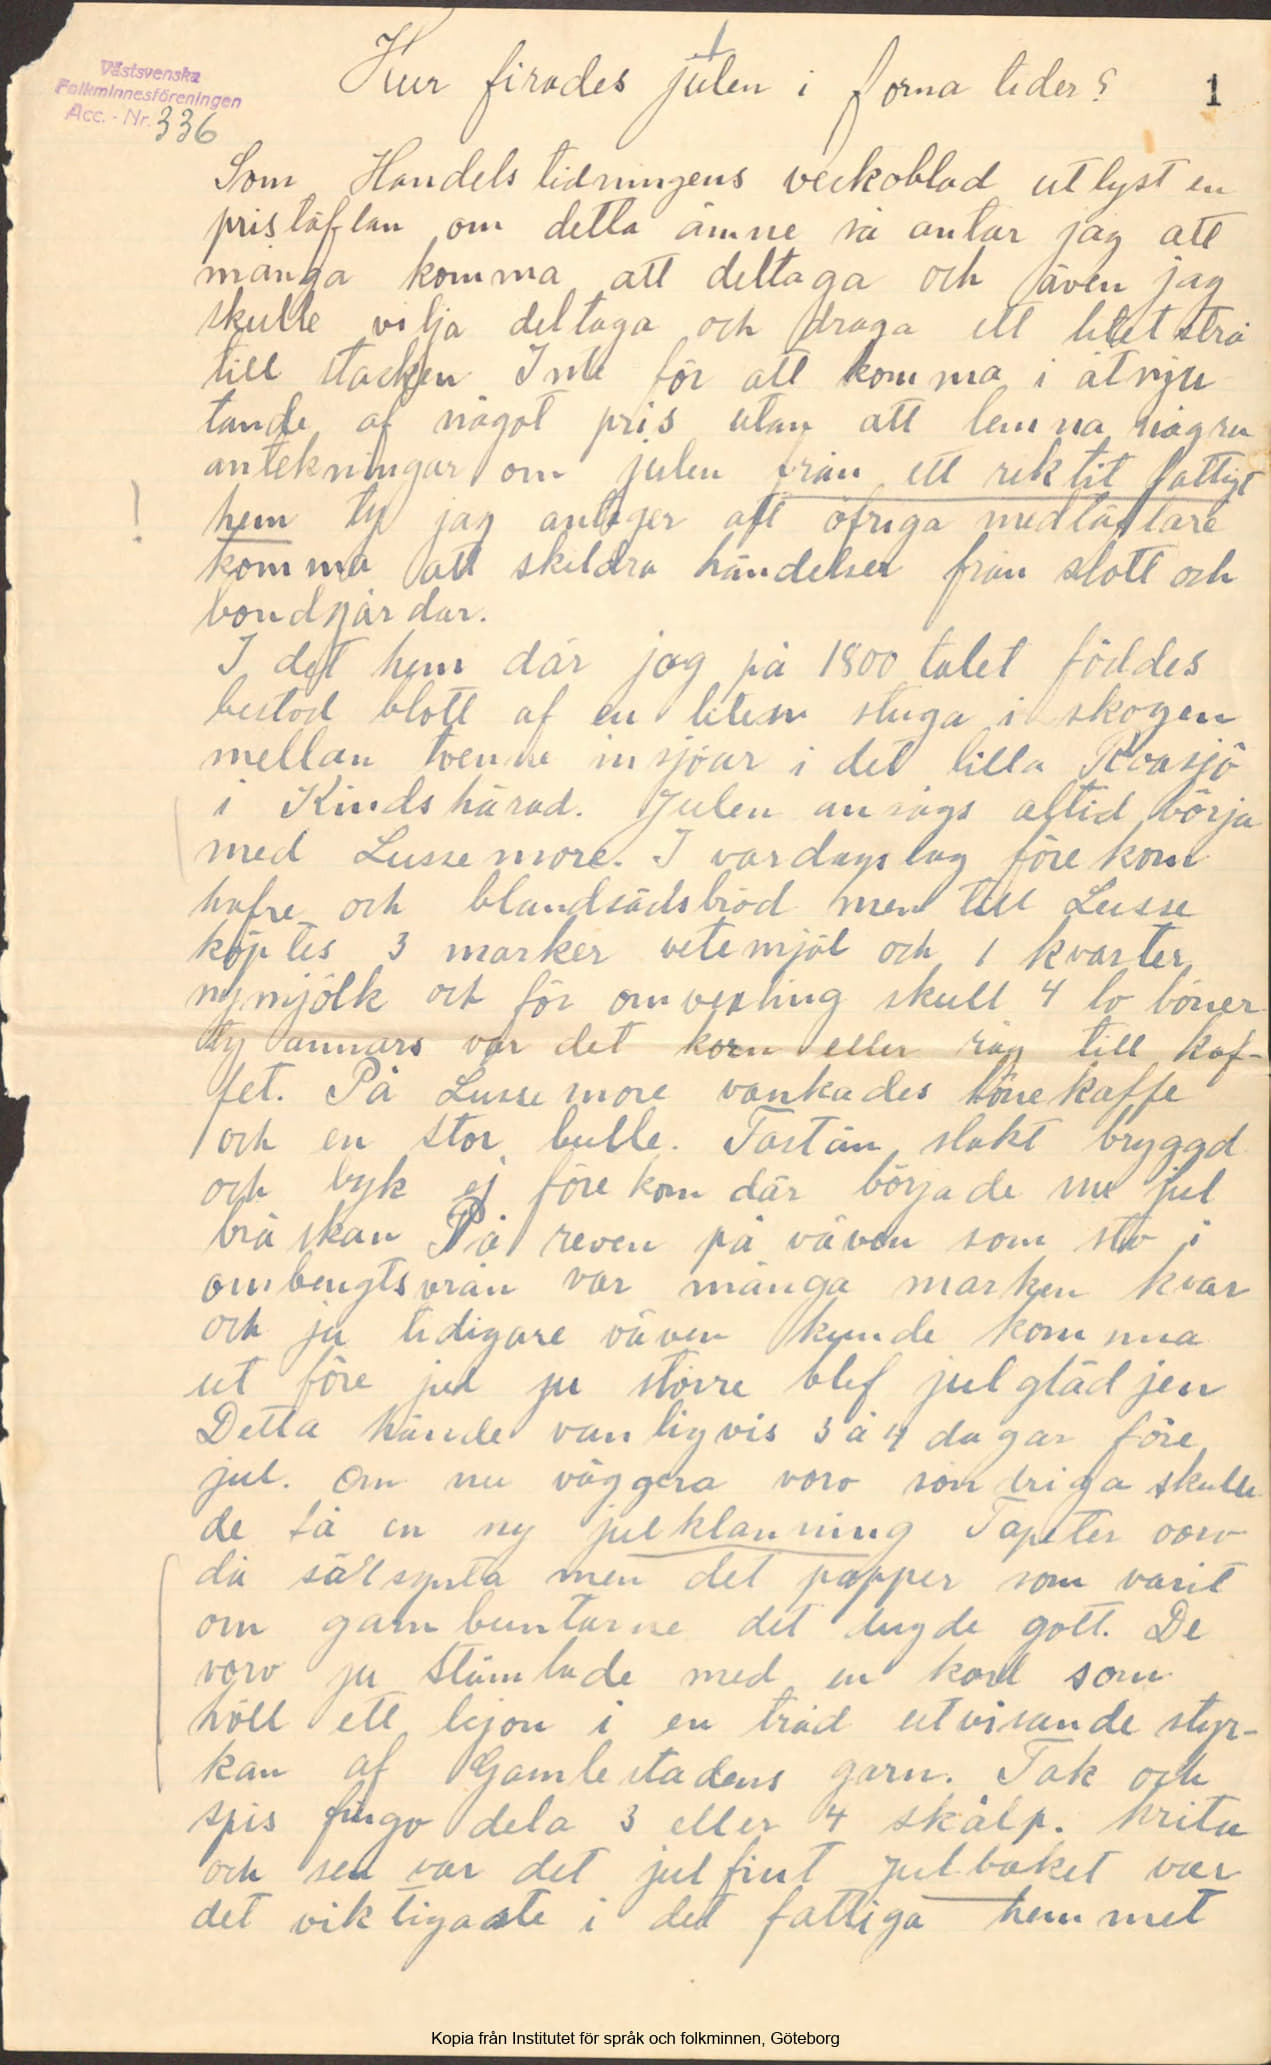 Hur firades julen i forna tider?
1
Västsvenska
Folkminnesföreningen
Acc. - Nr. 336
Som Handelstidningens veckoblad utlyst en
pristäflan om detta ämne så antar jag att
många komma att deltaga och även jag
skulle vilja deltaga och draga ett litet strå
till stacken Inte för att komma i åtnju
tande af något pris utan att lemna några
antekningar om julen från ett riktit fattigt
! hem ty jag antager att öfriga medtäflare
komma att skildra händelser från slott och
bondgårdar.
I det hem där jag på 1800 talet föddes
bestod blott af en liten stuga i skogen
mellan tvenne insjöar i det lilla Roasjö
i Kinds härad. Julen ansågs altid börja
med Lussemore. I vardagslag förekom
hafre och blandsädsbröd men till Lusse
köptes 3 marker vetemjöl och 1 kvarter
nymjölk och för omvexling skull 4 lo böner
ty annars var det korn eller råg till kaf-
fet. På Lussemore vankades bönekaffe
och en stor bulle. Fastän slakt bryggd
och byk ej förekom där började nu jul
brå skan På reven på väven som sto i
ombengtsvrån var många marken kvar
och ju tidigare väven kunde komma
ut före jul ju större blef julglädjen
Detta hände vanligvis 3 à 4 dagar före
jul. Om nu väggera voro sön driga skulle
de få en ny julklänning Tapeter voro
då sällsynta men det papper som varit
om garnbuntarne det dugde gott. De
voro ju stämlade med en karl som
höll ett lejon i en tråd utvisande styr-
kan af Gamlestadens garn. Tak och
spis fingo dela 3 eller 4 skålp. krita
och sen var det julfint julbaket var
det viktigaste i det fattiga hemmet
Kopia från Institutet för språk och folkminnen, Göteborg